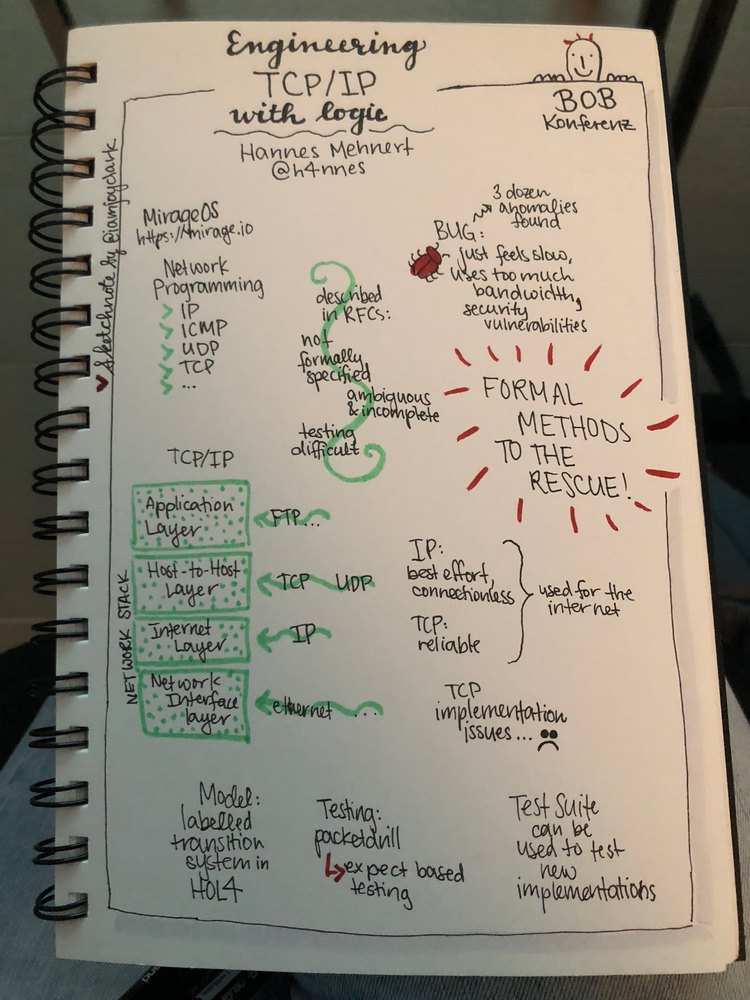 Engineering
TCP/IP
with logic
Hannes Mehnert
@h4nnes
BOB
Konferenz
Sketchnote by @iamjoyclark
MirageOS
https://mirage.io
Network
Programming
IP
ICMP
UDP
TCP
...
described
in RFCs:
not
formally
specified
ambiguous
& incomplete
testing
difficult
3 dozen
anomalies
found
BUG:
just feels slow,
uses too much
bandwidth,
security
vulnerabilities
FORMAL
METHODS
TO THE
RESCUE!
TCP/IP
NETWORK STACK
Application
Layer
FTP...
Host-to-Host
Layer
TCP UDP
Internet
Layer
IP
Network
Interface
layer
ethernet ...
IP:
best effort,
connectionless
TCP:
reliable
used for the
internet
TCP
implementation
issues...
Model:
labelled
transition
system in
HOL4
Testing:
packetdrill
expect based
testing
Test Suite
can be
used to test
new
implementations